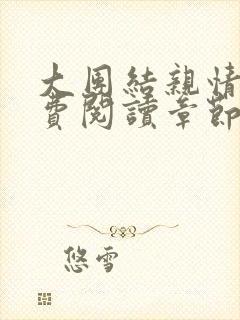 大團結親情
費閱讀章節
悠雪